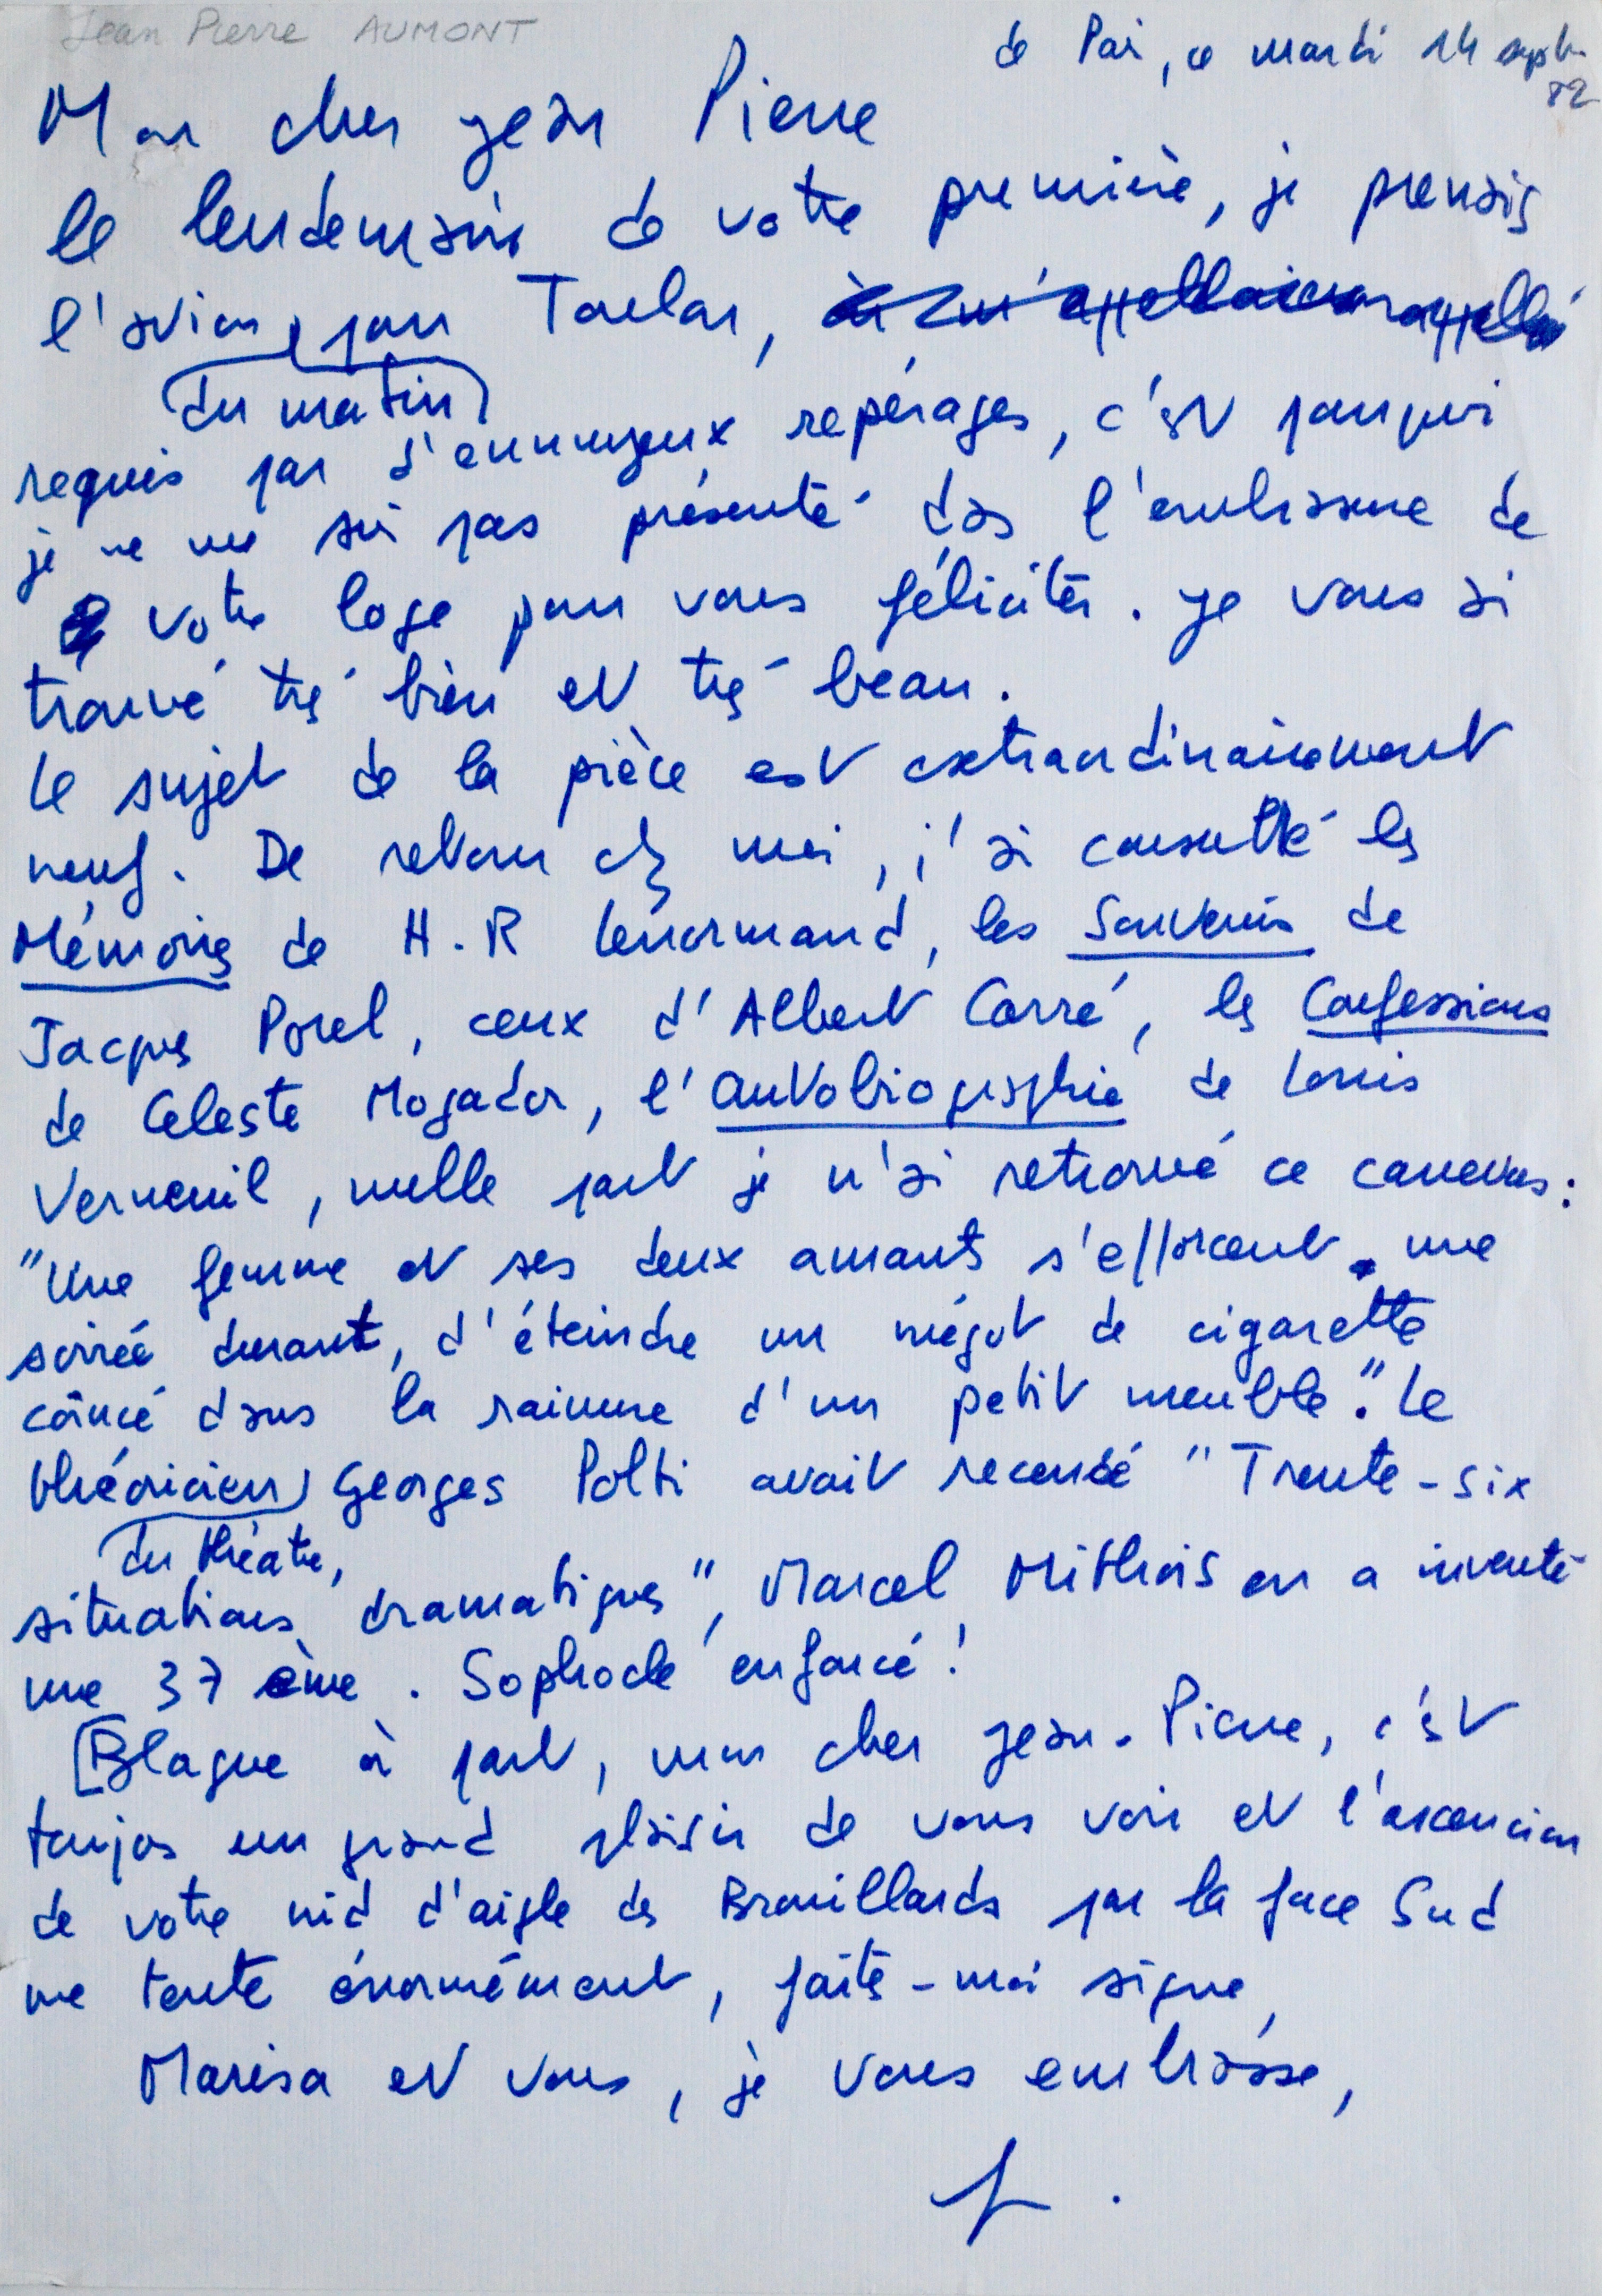 Jean Pierre AUMONT
de Paris, ce mardi 14 sept.
82
Mon cher Jean Pierre
le lendemain de votre première, je prenais
l'avion pour Toulon,
du matin
requis par d'ennuyeux repérages, c'est pourquoi
je ne me suis pas présenté dans l'embrasure de
votre loge pour vous féliciter. Je vous ai
trouvé très bien et très beau.
Le sujet de la pièce est extraordinairement
neuf. De retour chez moi, j'ai consulté les
Mémoires de H.R Lenormand, les Souvenirs de
Jacques Porel, ceux d'Albert Carré, les Confessions
de Celeste Mogador, l'autobiographie de Louis
Verneuil, nulle part je n'ai retrouvé ce canevas :
"Une femme et ses deux amants s'efforcent, une
soirée durant, d'éteindre un mégot de cigarette
coincé dans la rainure d'un petit meuble". Le
théoricien Georges Polti avait recensé "Trente-six
du théatre,
situations dramatiques", Marcel Mithois en a inventé
une 37 ème. Sophocle enfoncé !
Blague à part, mon cher Jean-Pierre, c'est
toujours un grand plaisir de vous voir et l'ascencion
de votre nid d'aigle des Brouillards par la face Sud
me tente énormément, faites-moi signe,
Marisa et vous, je vous embrasse,